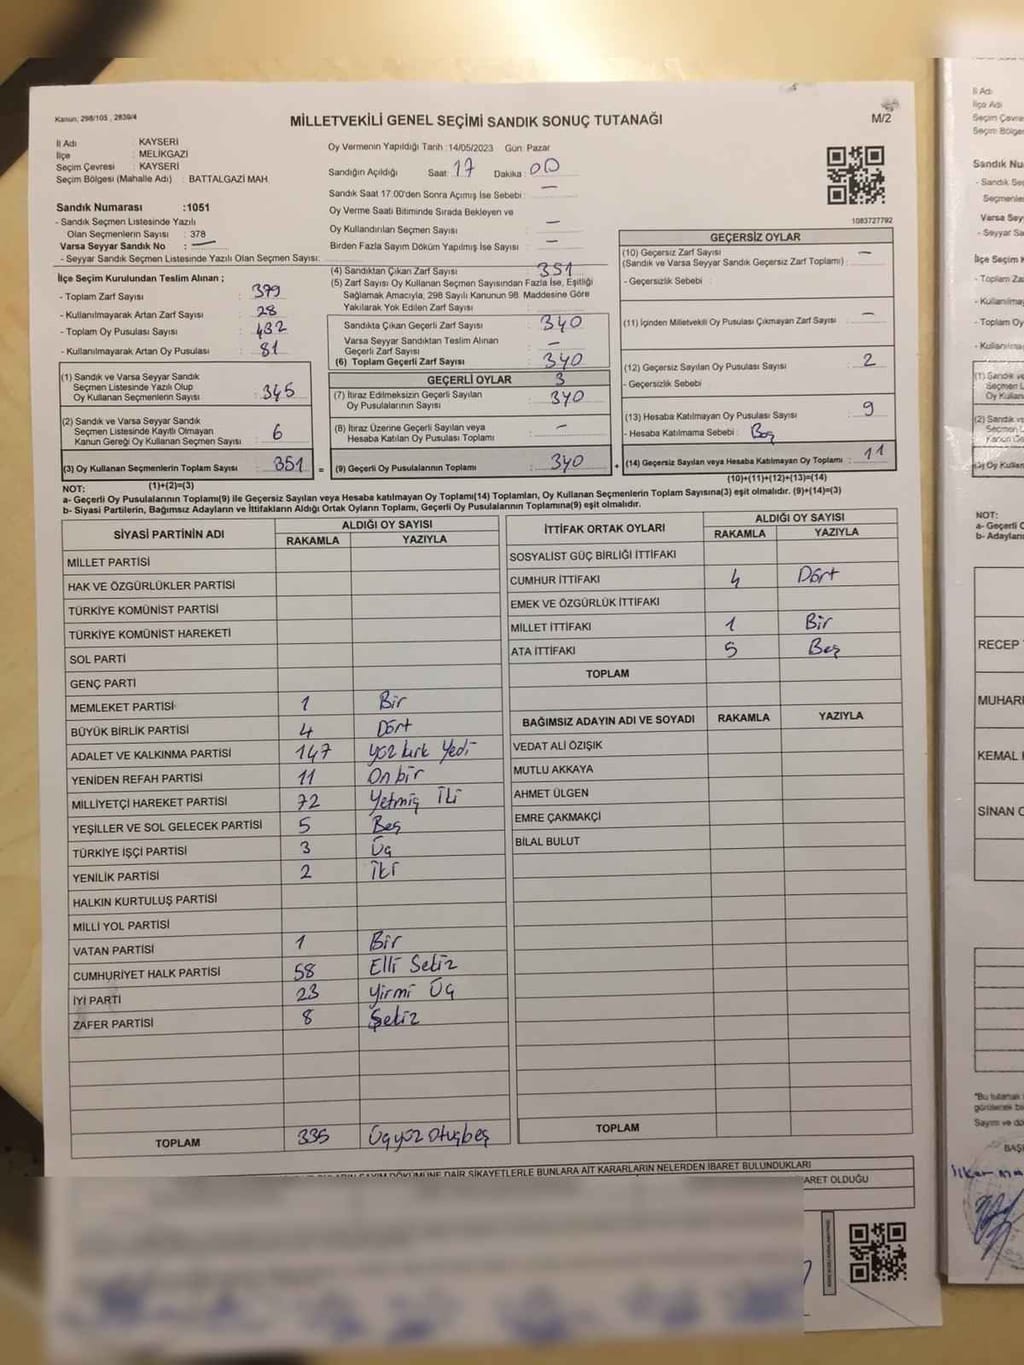 Kanun; 298/105 , 2839/4
MİLLETVEKİLİ GENEL SEÇİMİ SANDIK SONUÇ TUTANAĞI
M/2
İl Adı : KAYSERİ
İlçe : MELİKGAZİ
Seçim Çevresi : KAYSERİ
Seçim Bölgesi (Mahalle Adı) : BATTALGAZİ MAH.
Oy Vermenin Yapıldığı Tarih :14/05/2023 Gün: Pazar
Sandığın Açıldığı Saat: 17 Dakika: 00
Sandık Saat 17:00'den Sonra Açılmış İse Sebebi : —
Oy Verme Saati Bitiminde Sırada Bekleyen ve
Oy Kullandırılan Seçmen Sayısı : —
Birden Fazla Sayım Döküm Yapılmış İse Sayısı : —
1083727792
Sandık Numarası :1051
- Sandık Seçmen Listesinde Yazılı
Olan Seçmenlerin Sayısı : 378
Varsa Seyyar Sandık No : —
- Seyyar Sandık Seçmen Listesinde Yazılı Olan Seçmen Sayısı:
İlçe Seçim Kurulundan Teslim Alınan ;
- Toplam Zarf Sayısı : 379
- Kullanılmayarak Artan Zarf Sayısı : 28
- Toplam Oy Pusulası Sayısı : 432
- Kullanılmayarak Artan Oy Pusulası : 81
(1) Sandık ve Varsa Seyyar Sandık
Seçmen Listesinde Yazılı Olup
Oy Kullanan Seçmenlerin Sayısı : 345
(2) Sandık ve Varsa Seyyar Sandık
Seçmen Listesinde Kayıtlı Olmayan
Kanun Gereği Oy Kullanan Seçmen Sayısı : 6
(3) Oy Kullanan Seçmenlerin Toplam Sayısı : 351 =
(1)+(2)=(3)
(4) Sandıktan Çıkan Zarf Sayısı : 351
(5) Zarf Sayısı Oy Kullanan Seçmen Sayısından Fazla İse, Eşitliği
Sağlamak Amacıyla, 298 Sayılı Kanunun 98. Maddesine Göre
Yakılarak Yok Edilen Zarf Sayısı :
Sandıkta Çıkan Geçerli Zarf Sayısı : 340
Varsa Seyyar Sandıktan Teslim Alınan
Geçerli Zarf Sayısı : —
(6) Toplam Geçerli Zarf Sayısı : 340
GEÇERLİ OYLAR 3
(7) İtiraz Edilmeksizin Geçerli Sayılan
Oy Pusulalarının Sayısı : 340
(8) İtiraz Üzerine Geçerli Sayılan veya
Hesaba Katılan Oy Pusulası Toplamı : —
(9) Geçerli Oy Pusulalarının Toplamı : 340 +
GEÇERSİZ OYLAR
(10) Geçersiz Zarf Sayısı
(Sandık ve Varsa Seyyar Sandık Geçersiz Zarf Toplamı) : —
- Geçersizlik Sebebi :
(11) İçinden Milletvekili Oy Pusulası Çıkmayan Zarf Sayısı : —
(12) Geçersiz Sayılan Oy Pusulası Sayısı : 2
- Geçersizlik Sebebi :
(13) Hesaba Katılmayan Oy Pusulası Sayısı : 9
- Hesaba Katılmama Sebebi : Boş
(14) Geçersiz Sayılan veya Hesaba Katılmayan Oy Toplamı : 11
(10)+(11)+(12)+(13)=(14)
NOT:
a- Geçerli Oy Pusulalarının Toplamı(9) ile Geçersiz Sayılan veya Hesaba katılmayan Oy Toplamı(14) Toplamları, Oy Kullanan Seçmenlerin Toplam Sayısına(3) eşit olmalıdır. (9)+(14)=(3)
b- Siyasi Partilerin, Bağımsız Adayların ve İttifakların Aldığı Ortak Oyların Toplamı, Geçerli Oy Pusulalarının Toplamına(9) eşit olmalıdır.
SİYASİ PARTİNİN ADI ALDIĞI OY SAYISI
RAKAMLA YAZIYLA
MİLLET PARTİSİ
HAK VE ÖZGÜRLÜKLER PARTİSİ
TÜRKİYE KOMÜNİST PARTİSİ
TÜRKİYE KOMÜNİST HAREKETİ
SOL PARTİ
GENÇ PARTİ
MEMLEKET PARTİSİ 1 Bir
BÜYÜK BİRLİK PARTİSİ 4 Dört
ADALET VE KALKINMA PARTİSİ 147 yüz kırk Yedi
YENİDEN REFAH PARTİSİ 11 Onbir
MİLLİYETÇİ HAREKET PARTİSİ 72 Yetmiş İki
YEŞİLLER VE SOL GELECEK PARTİSİ 5 Beş
TÜRKİYE İŞÇİ PARTİSİ 3 Üç
YENİLİK PARTİSİ 2 İki
HALKIN KURTULUŞ PARTİSİ
MİLLİ YOL PARTİSİ
VATAN PARTİSİ 1 Bir
CUMHURİYET HALK PARTİSİ 58 Elli Sekiz
İYİ PARTİ 23 Yirmi Üç
ZAFER PARTİSİ 8 Sekiz
TOPLAM 335 Üçyüz otuzbeş
İTTİFAK ORTAK OYLARI ALDIĞI OY SAYISI
RAKAMLA YAZIYLA
SOSYALİST GÜÇ BİRLİĞİ İTTİFAKI
CUMHUR İTTİFAKI 4 Dört
EMEK VE ÖZGÜRLÜK İTTİFAKI
MİLLET İTTİFAKI 1 Bir
ATA İTTİFAKI 5 Beş
TOPLAM
BAĞIMSIZ ADAYIN ADI VE SOYADI RAKAMLA YAZIYLA
VEDAT ALİ ÖZIŞIK
MUTLU AKKAYA
AHMET ÜLGEN
EMRE ÇAKMAKÇİ
BİLAL BULUT
TOPLAM
DÖKÜMÜNE DAİR ŞİKAYETLERLE BUNLARA AİT KARARLARIN NELERDEN İBARET BULUNDUKLARI
ARET OLDUĞU
İl Adı
İlçe Adı
Seçim Çevre
Seçim Bölges
Sandık Nu
- Sandık Se
Seçmenle
Varsa Sey
- Seyyar Sa
İlçe Seçim K
- Toplam Za
- Kullanılmay
- Toplam Oy
- Kullanılma
(1) Sandık ve
Seçmen Li
Oy Kullan
(2) Sandık ve
Seçmen L
Kanun Ge
(3) Oy Kullan
NOT:
a- Geçerli O
b- Adayların
RECEP
MUHAR
KEMAL
SİNAN O
"Bu tutanak
görülecek bi
Sayım ve dö
BAŞ